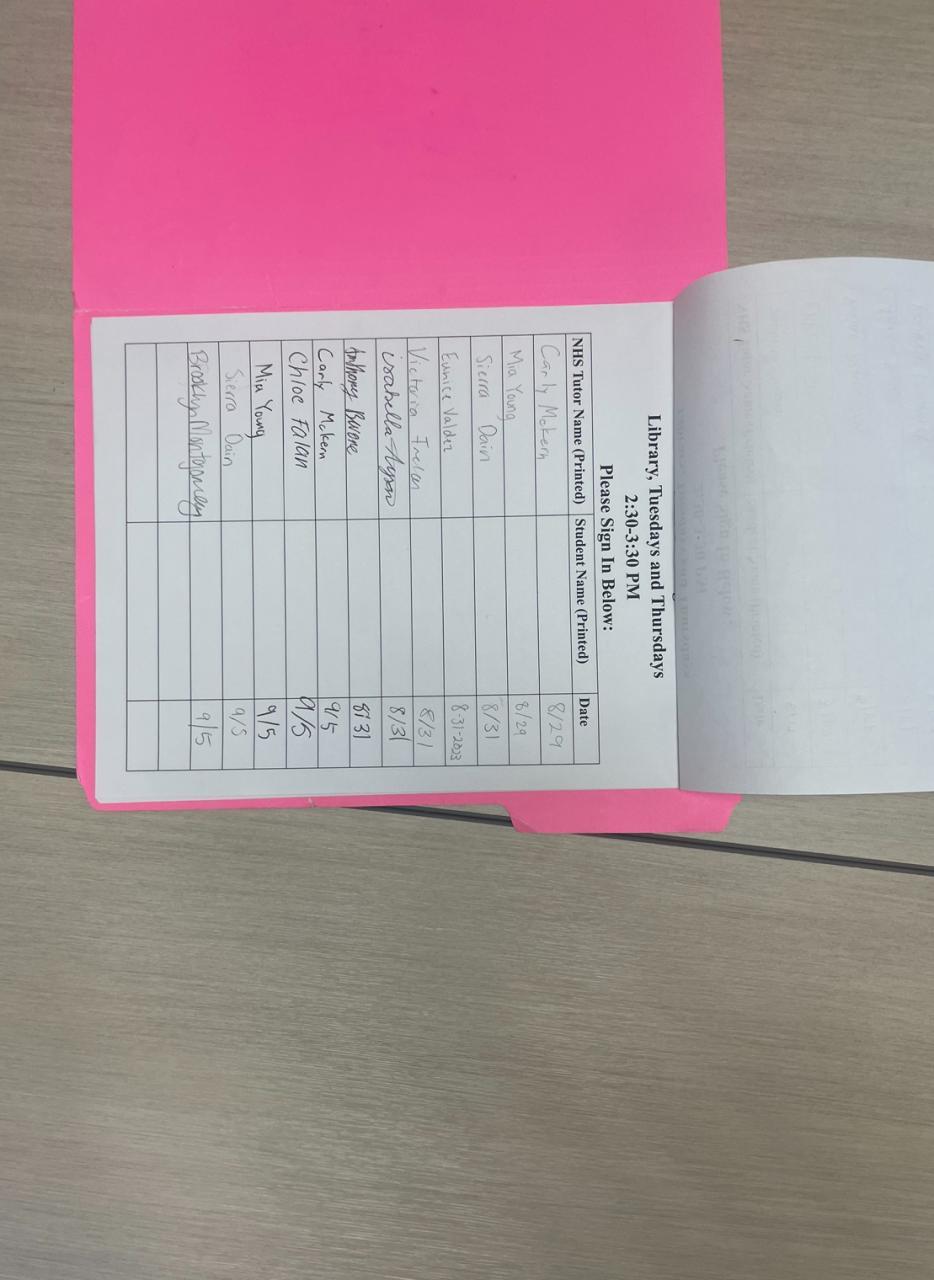 Library, Tuesdays and Thursdays
2:30-3:30 PM
Please Sign In Below:
NHS Tutor Name (Printed) Student Name (Printed) Date
Carly McKern 8/29
Mia Young 8/29
Sierra Dain 8/31
Eunice Valdez 8-31-2023
Victoria 8/31
Isabella 8/31
Anthony 8/31
Carly McKern 9/5
Chloe Falan 9/5
Mia Young 9/5
Sierra Dain 9/5
Brooklyn Montgomery 9/5